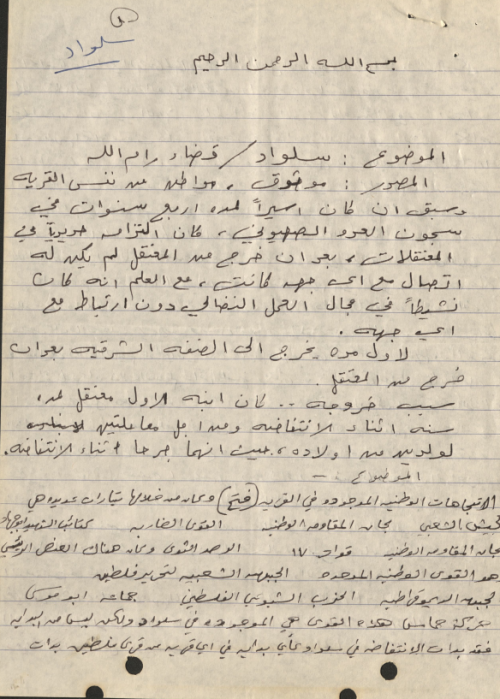 سلواد
بسم الله الرحمن الرحيم
الموضوع : سلواد / قضاء رام الله
المصدر : موثوق ، مواطن من نفس القريه
وسبق ان كان اسيراً لمده اربع سنوات في
سجون العدو الصهيوني ، كان التزامه حديدياً في
المعتقلات ، بعد ان خرج من المعتقل لم يكن له
اتصال مع اي جهه كانت ، مع العلم انه كان
نشيطاً في مجال العمل النضالي دون ارتباط مع
اي جهه .
لاول مره يخرج الى الضفه الشرقيه بعد ان
خرج من المعتقل .
سبب خروجه .. كان ابنه الاول معتقل لمده
سنه اثناء الانتفاضه ومن اجل معاملتين
لولدين من اولاده ، حيث انهما جرحا اثناء الانتفاضه .
الموضوع : -
الاتجاهات الوطنيه الموجوده في القريه (فتح) وكان من خلالها تيارات عديده هي
الجيش الشعبي لجان المقاومه الوطنيه القوى الضاربه كتائب الشهيد ابو جهاد
لجان المقاومه الوطنيه قوات ١٧ الرصد الثوري وكان هناك العنصر الرئيسي
هو القوى الوطنيه الموحده الجبهه الشعبيه لتحرير فلسطين
الجبهه الديموقراطيه الحزب الشيوعي الفلسطيني جماعة ابو موسى
حركة حماس هذه القوى هي الموجوده في سلواد ولكن ليس من البدايه
فقد بدات الانتفاضه في سلواد كأي بدايه في اي قريه من قرى فلسطين بدات